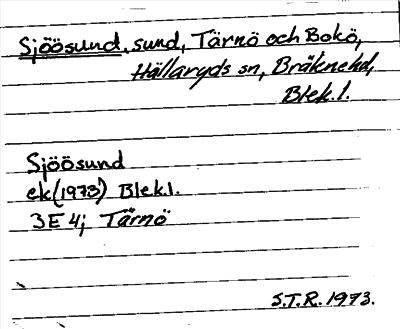 Sjöösund, sund, Tärnö och Bokö,
Hällaryds sn, Bräknehd,
Blek.l.
Sjöösund
ek(1973) Blek.l.
3E 4j Tärnö
S.T.R. 1973.